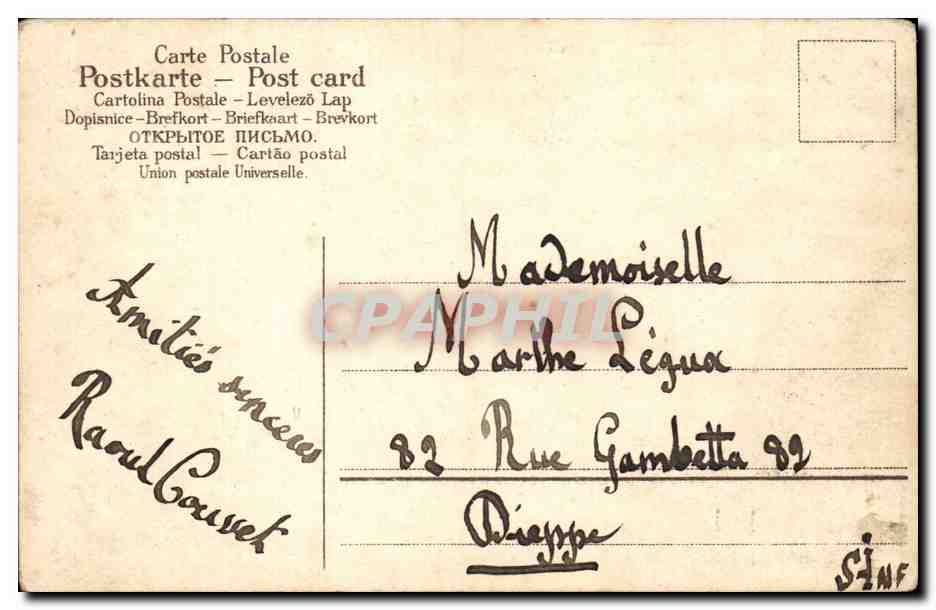 Carte Postale
Postkarte — Post card
Cartolina Postale – Levelező Lap
Dopisnice – Brefkort – Briefkaart – Brevkort
ОТКРЫТОЕ ПИСЬМО.
Tarjeta postal — Cartão postal
Union postale Universelle.
Amitiés sincères
Raoul Cousset
Mademoiselle
Marthe Légua
82 Rue Gambetta 82
Dieppe
CPAPHIL